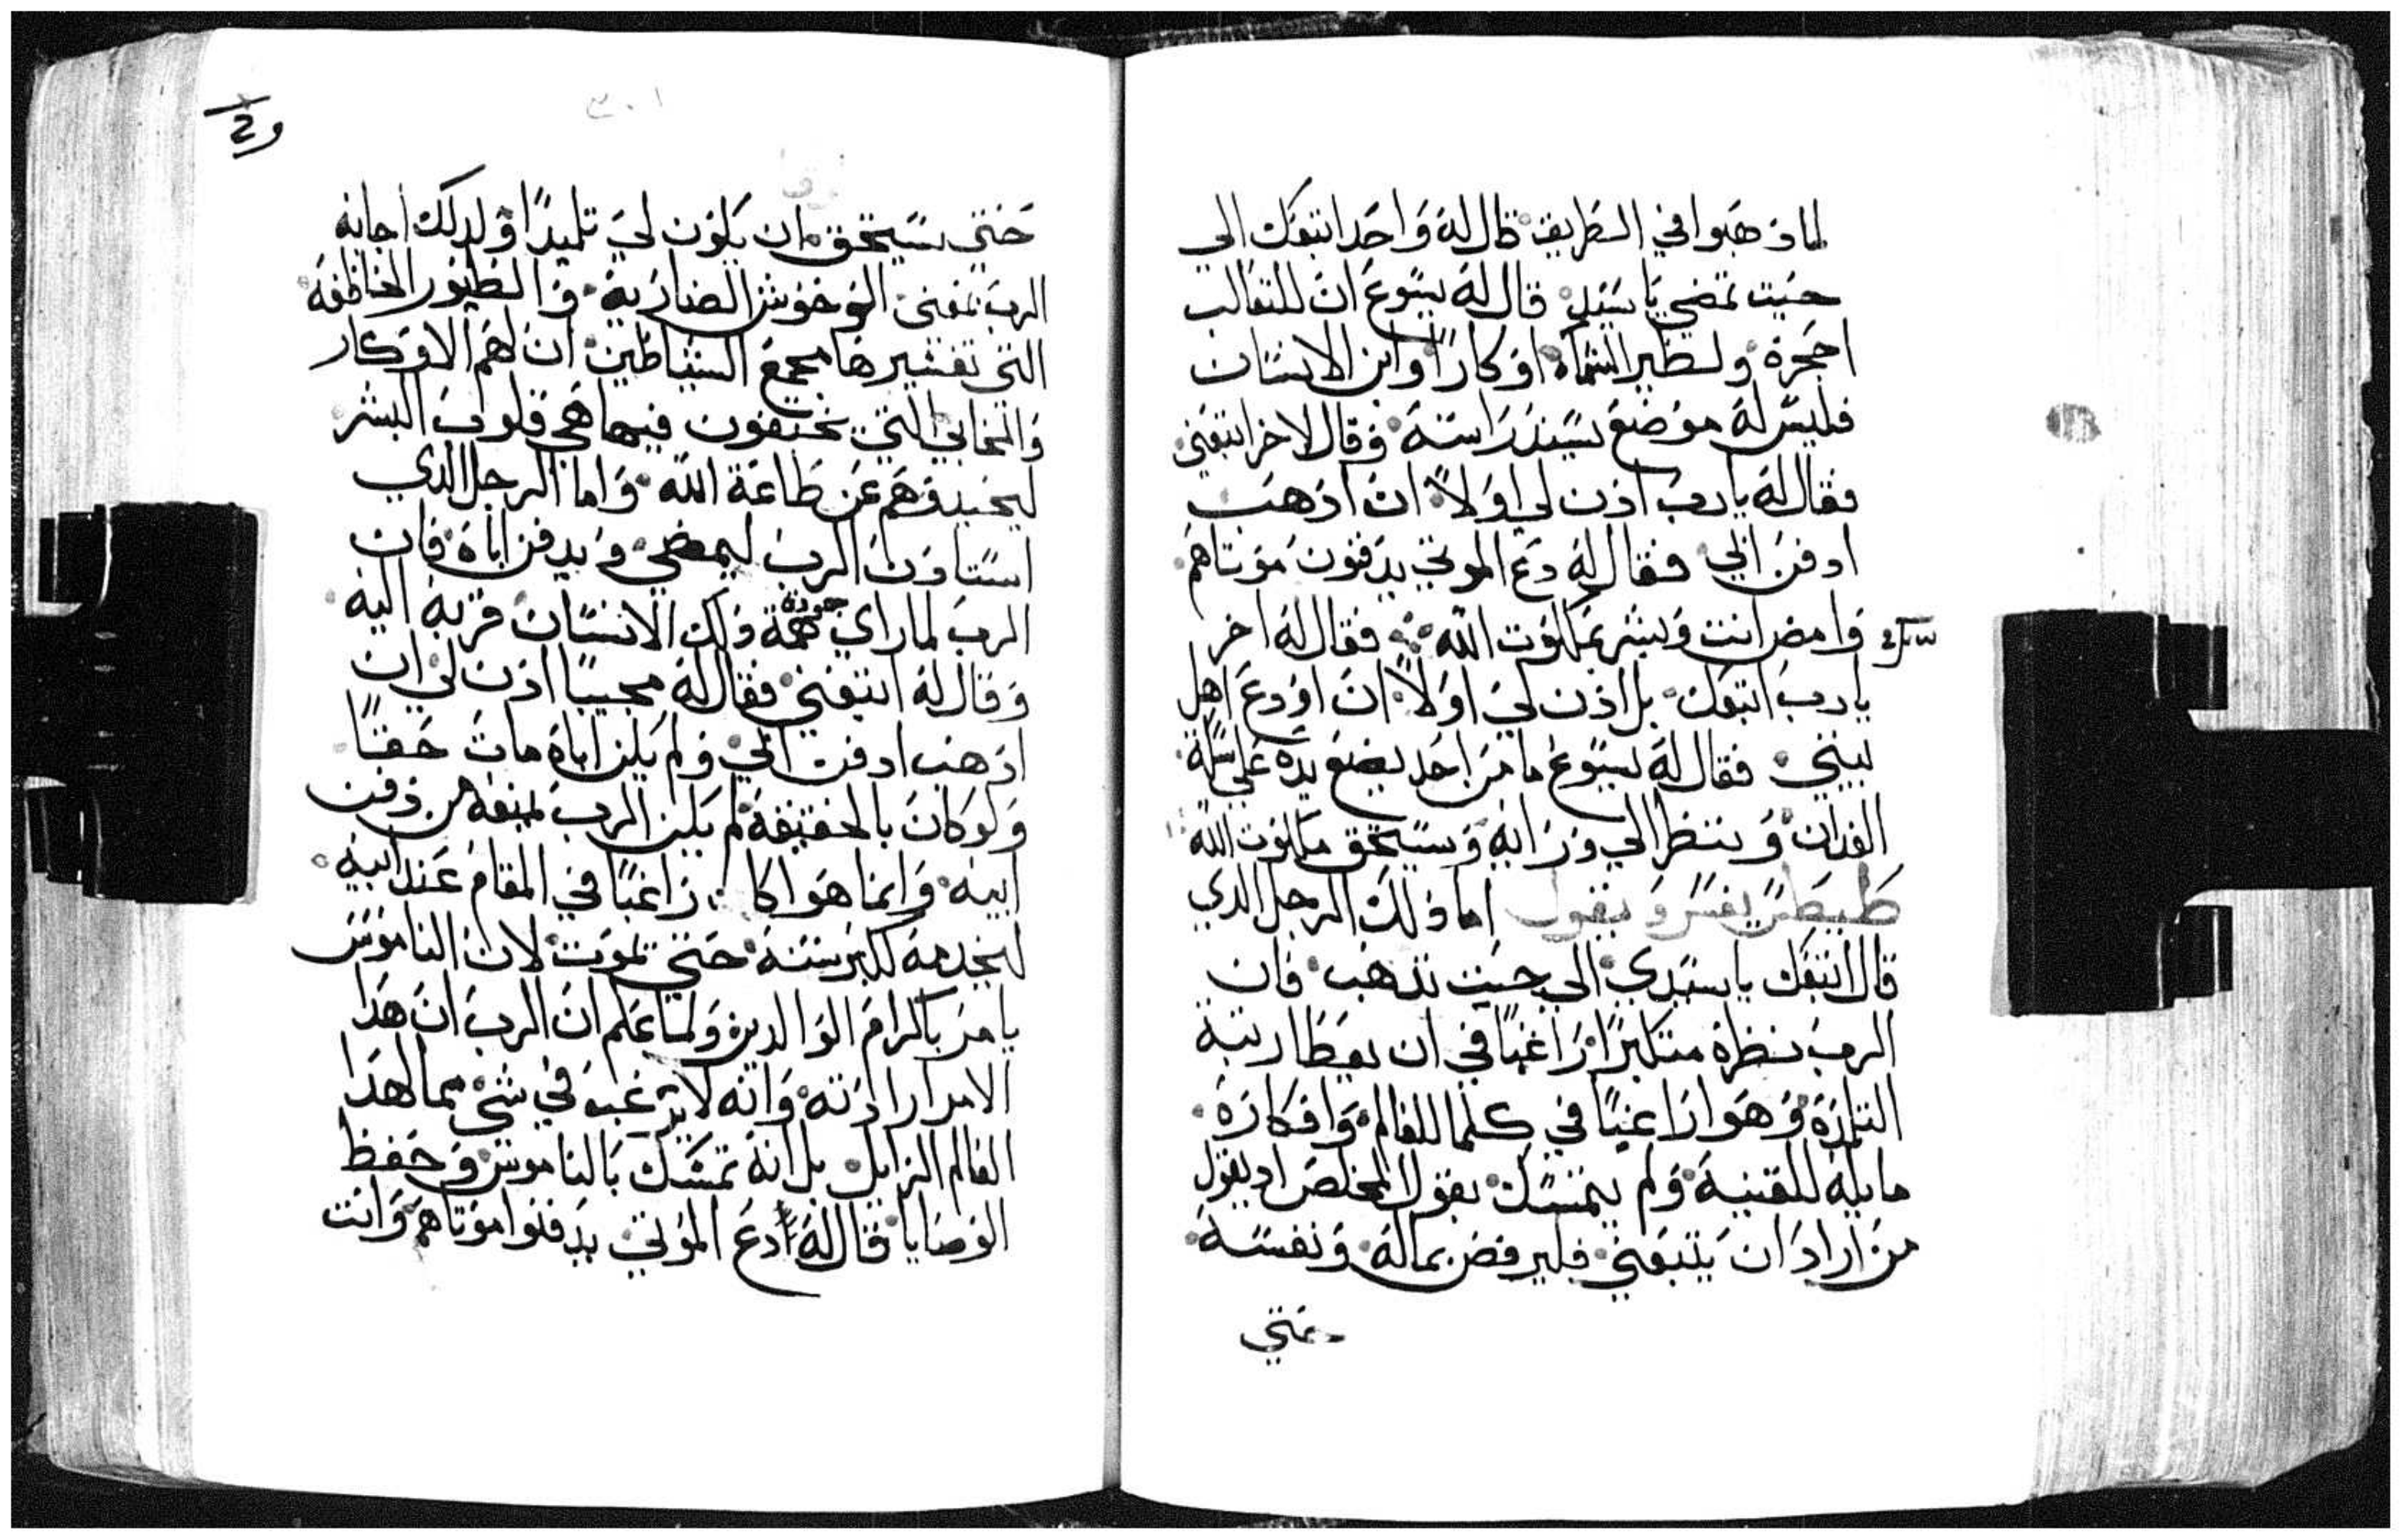 لما ذهبوا في الطريق قال له واحد اتبعك الي
حيت تمضي يا سيد قال له يسوع ان للتعالب
احجرة ولطير السماء اوكارا وابن الانسان
فليس له موضع يسند راسه وقال لاخر اتبعني
فقال له يارب اذن لي اولا ان اذهب
ادفن ابي فقال له دع الموتي يدفنون موتاهم
وامض انت وبشر بملكوت الله فقال له اخر
يارب اتبعك بل اذن لي اولا ان اودع اهل
بيتي فقال له يسوع ما من احد يضع يده علي سكة
الفدان وينظر الي ورايه ويستحق ملكوت الله
طيطس يفسر ويقول اما ذلك الرجل الدي
قال اتبعك يا سيدي الي حيت تذهب فان
الرب نظره متكبرا راغبا في ان يعطا رتبة
التلمذة وهو راغبا في كلما للعالم وافكاره
مايلة للقنية ولم يتمسك بقول المخلص اد يقول
من اراد ان يتبعني فليرفض بماله ونفسه
حتي
حتي يستحق ان يكون لي تلميدا ولدلك اجابه
الرب بمعني الوحوش الضارية والطيور الخاطفة
التي تفسيرها مجمع الشياطين ان لهم الاوكار
والمخابي التي يختفون فيها هي قلوب البشر
ليحيدوهم عن طاعة الله واما الرجل الدي
استاذن الرب ليمضي ويدفن اباه فان
الرب لما راي جودة همة ذلك الانسان قربه اليه
وقال له اتبعني فقال له مجيبا اذن لي ان
اذهب ادفن ابي ولم يكن اباه مات حقا
ولو كان بالحقيقة لم يكن الرب يمنعه من دفن
ابيه وانما هوا كان راغبا في المقام عند ابيه
ليخدمه لكبر سنه حتي يموت لان الناموس
يامر باكرام الوالدين ولما علم ان الرب ان هدا
الامر ارادته وانه لا يرغب في شي مما لهدا
العالم الزايل بل انه تمسك بالناموس وحفظ
الوصايا قال له دع الموتي يدفنوا موتاهم وانت